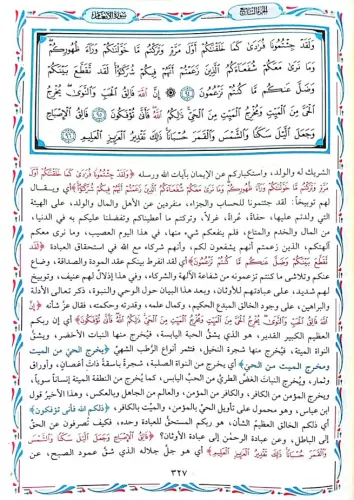 الجزء السابع
سورة الأنعام
وَلَقَدْ جِئْتُمُونَا فُرَادَىٰ كَمَا خَلَقْنَاكُمْ أَوَّلَ مَرَّةٍ وَتَرَكْتُم مَّا خَوَّلْنَاكُمْ وَرَاءَ ظُهُورِكُمْ
وَمَا نَرَىٰ مَعَكُمْ شُفَعَاءَكُمُ الَّذِينَ زَعَمْتُمْ أَنَّهُمْ فِيكُمْ شُرَكَاءُ لَقَد تَّقَطَّعَ بَيْنَكُمْ
وَضَلَّ عَنكُم مَّا كُنتُمْ تَزْعُمُونَ ﴿٩٤﴾ إِنَّ اللَّهَ فَالِقُ الْحَبِّ وَالنَّوَىٰ يُخْرِجُ
الْحَيَّ مِنَ الْمَيِّتِ وَمُخْرِجُ الْمَيِّتِ مِنَ الْحَيِّ ذَٰلِكُمُ اللَّهُ فَأَنَّىٰ تُؤْفَكُونَ ﴿٩٥﴾ فَالِقُ الْإِصْبَاحِ
وَجَعَلَ اللَّيْلَ سَكَنًا وَالشَّمْسَ وَالْقَمَرَ حُسْبَانًا ذَٰلِكَ تَقْدِيرُ الْعَزِيزِ الْعَلِيمِ ﴿٩٦﴾
الشريك له والولد، واستكباركم عن الإيمان بآيات الله ورسله ﴿وَلَقَدْ جِئْتُمُونَا فُرَادَىٰ كَمَا خَلَقْنَاكُمْ أَوَّلَ
مَرَّةٍ وَتَرَكْتُم مَّا خَوَّلْنَاكُمْ وَرَاءَ ظُهُورِكُمْ وَمَا نَرَىٰ مَعَكُمْ شُفَعَاءَكُمُ الَّذِينَ زَعَمْتُمْ أَنَّهُمْ فِيكُمْ شُرَكَاءُ﴾ أي ويقال
لهم توبيخاً: لقد جئتمونا للحساب والجزاء، منفردين عن الأهل والمال والولد، على الهيئة
التي ولدتم عليها، حفاةً، عُراةً، غرلاً، وتركتم ما أعطيناكم وتفضلنا عليكم به في الدنيا،
من المال والخدم والمتاع، فلم ينفعكم شيء منها، في هذا اليوم العصيب، وما نرى معكم
آلهتكم، الذين زعمتم أنهم يشفعون لكم، وأنهم شركاء مع الله في استحقاق العبادة ﴿لَقَد
تَّقَطَّعَ بَيْنَكُمْ وَضَلَّ عَنكُم مَّا كُنتُمْ تَزْعُمُونَ﴾ أي لقد انفرط بينكم عقد المودة والصداقة، وضاع
عنكم وتلاشى ما كنتم تزعمونه من شفاعة الآلهة والشركاء، وفي هذا إذلال لهم عنيف، وتوبيخ
لهم شديد، على عبادتهم للأوثان، وبعد هذا البيان حول الوحي والنبوة، ذكر تعالى الأدلة
والبراهين، على وجود الخالق المبدع الحكيم، وكمال علمه، وقدرته وحكمته، فقال عزّ شأنه ﴿إِنَّ
اللَّهَ فَالِقُ الْحَبِّ وَالنَّوَىٰ يُخْرِجُ الْحَيَّ مِنَ الْمَيِّتِ وَمُخْرِجُ الْمَيِّتِ مِنَ الْحَيِّ ذَٰلِكُمُ اللَّهُ فَأَنَّىٰ تُؤْفَكُونَ﴾ أي إن ربكم
العظيم الكبير القدير، هو الذي يشقُّ الحبة اليابسة، فيخرج منها النبات الأخضر، ويشقُّ
النواة الميتة، فيخرج منها شجرة النخيل، فتثمر أنواع الرُّطب الشهيّ ﴿يخرج الحيَّ من الميت
ومخرج الميت من الحيّ﴾ أي يخرج من النواة الصلبة، شجرةً باسقة ذاتَ أغصانٍ، وأوراق
وثمار، ويُخرج النباتَ الغضَّ الطريَّ من الحبّ اليابس، كما يُخرج من النطفة الميتة إنساناً سوياً،
ويخرج المؤمن من الكافر، والكافر من المؤمن، والعالم من الجاهل وبالعكس، وهذا الأخير قول
ابن عباس، وهو محمول على تأويل الحيّ بالمؤمن، والميِّت بالكافر ﴿ذلكم الله فأنى تؤفكون﴾
أي ذلكم الخالق العظيمُ الشأن، هو ربكم المستحقُّ للعبادة وحده، فكيف تُصرفون عن الحق
إلى الباطل، وعن عبادة الرحمن إلى عبادة الأوثان؟ ﴿فَالِقُ الْإِصْبَاحِ وَجَعَلَ اللَّيْلَ سَكَنًا وَالشَّمْسَ
وَالْقَمَرَ حُسْبَانًا ذَٰلِكَ تَقْدِيرُ الْعَزِيزِ الْعَلِيمِ﴾ أي هو جلّ جلاله الذي شقَّ عمود الصبح، عن
٣٢٧